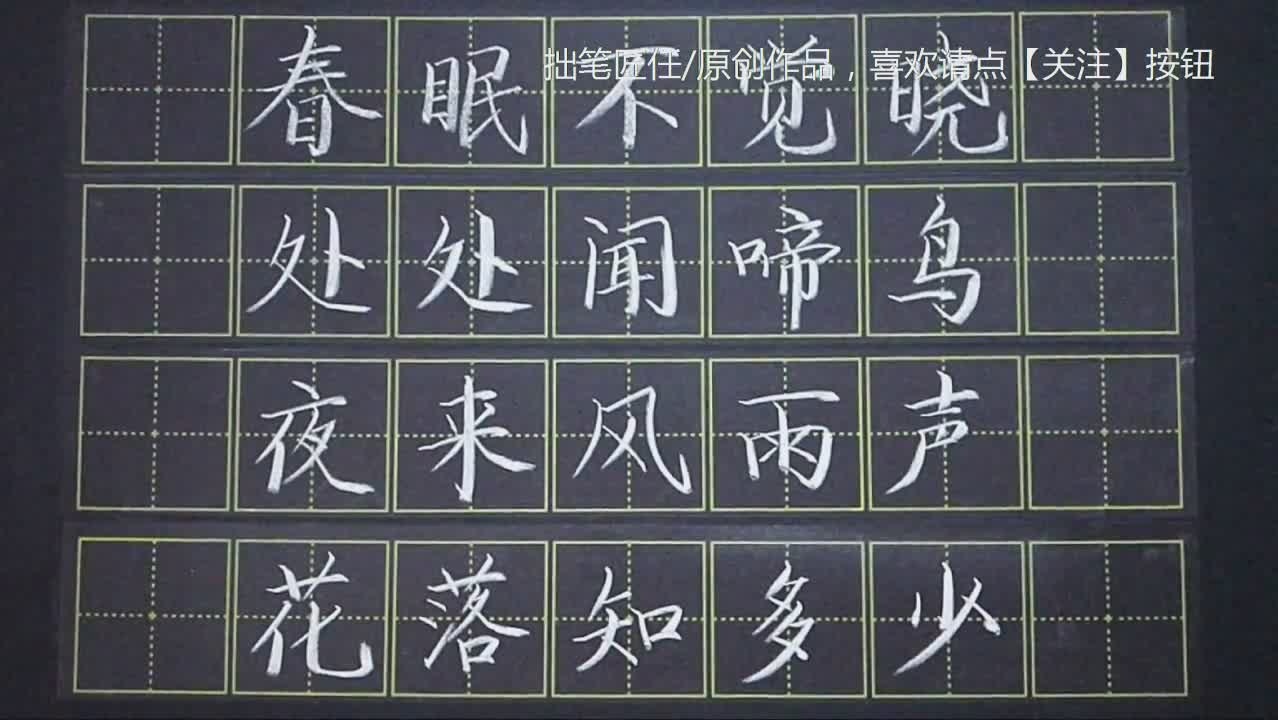 拙笔匠任/原创作品，喜欢请点【关注】按钮
春眠不觉晓
处处闻啼鸟
夜来风雨声
花落知多少